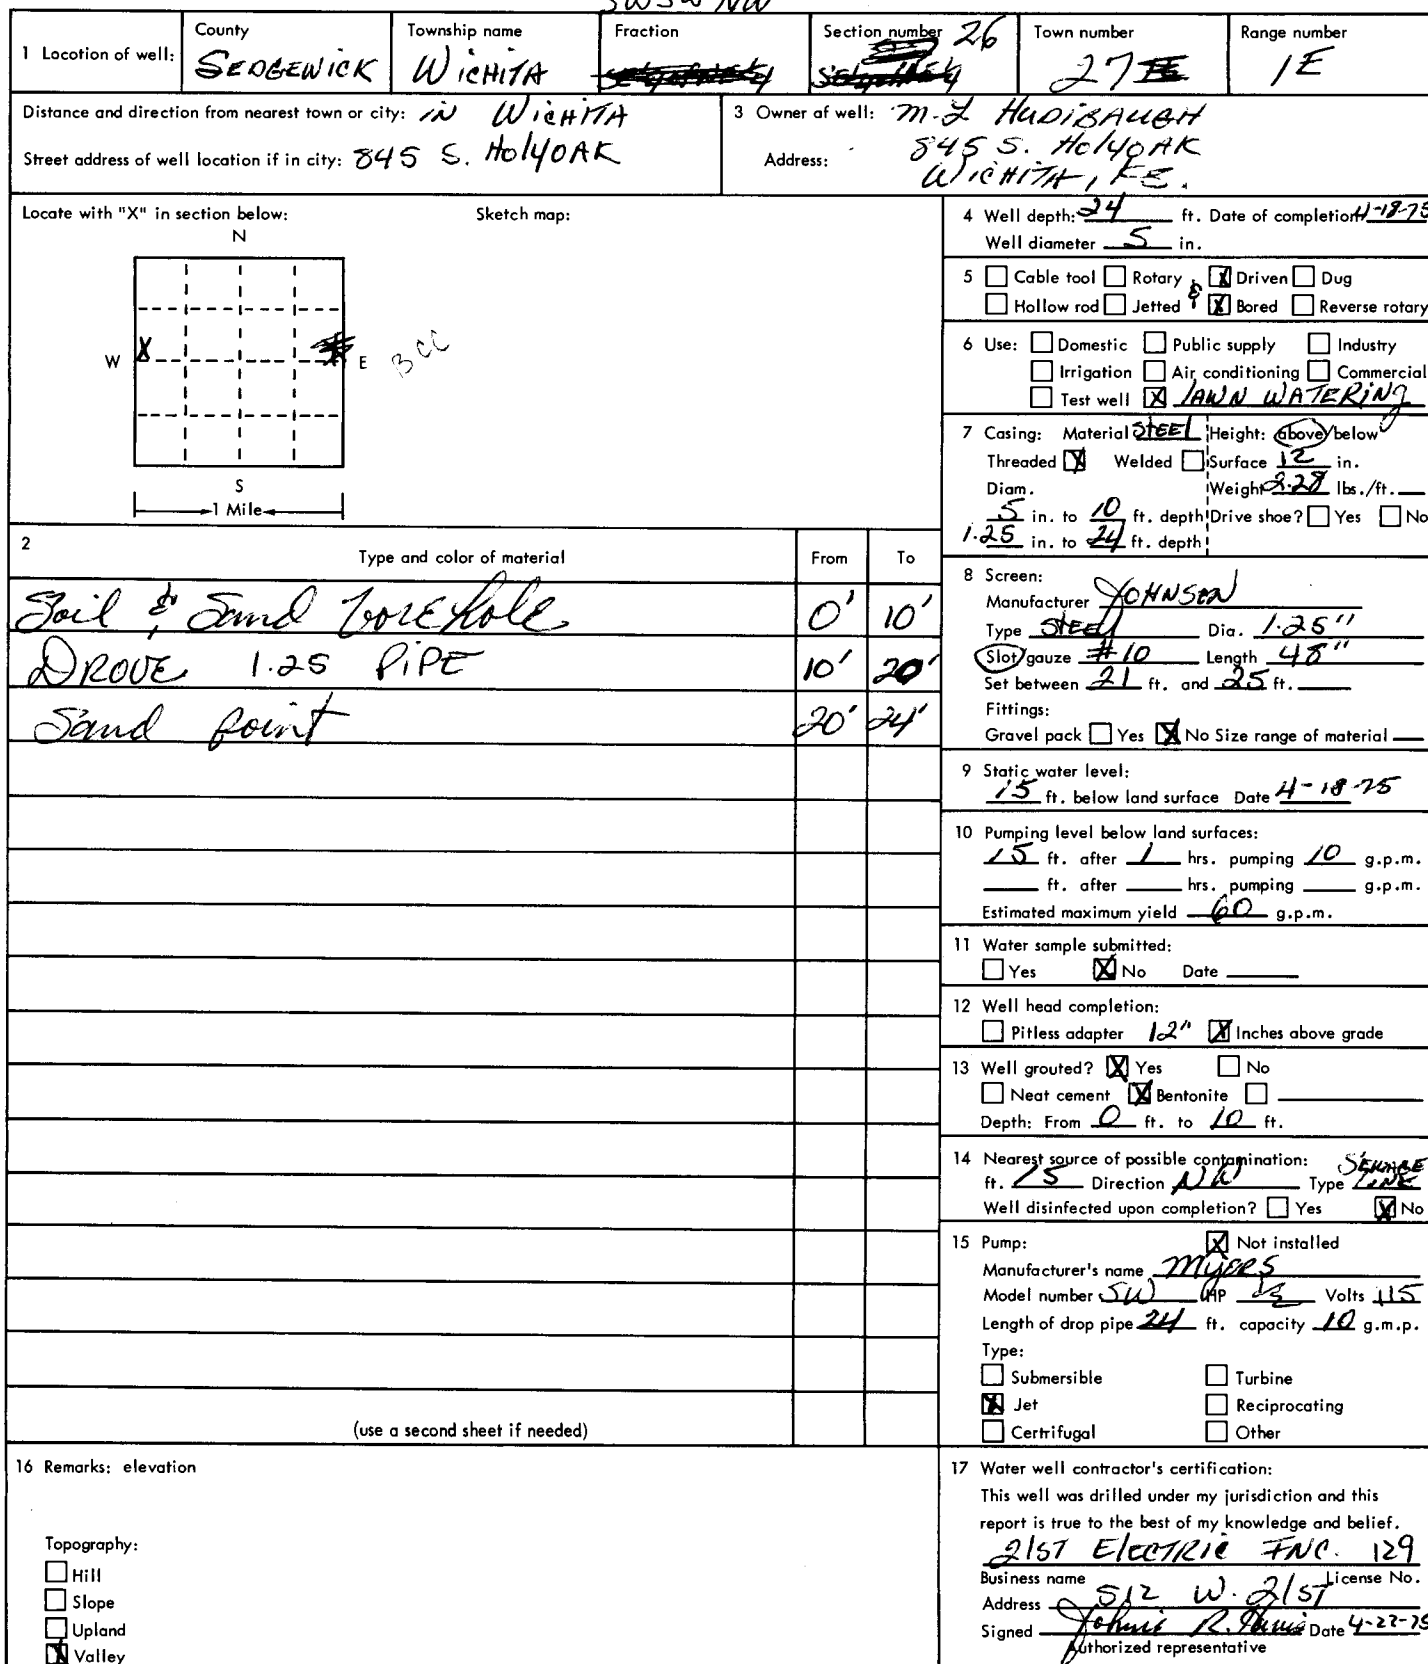 SW SW NW
1 Location of well: County Township name Fraction Section number 26 Town number Range number
SEDGEWICK WICHITA 27 1E
Distance and direction from nearest town or city: IN WICHITA
Street address of well location if in city: 845 S. HOlYOAK
3 Owner of well: M.L HUDIBAUGH
Address: 845 S. HOlYOAK
WICHITA, KS.
Locate with "X" in section below: Sketch map:
N
W X E BCC
S
1 Mile
4 Well depth: 24 ft. Date of completion 4-18-75
Well diameter 5 in.
5 Cable tool Rotary X Driven Dug
Hollow rod Jetted & X Bored Reverse rotary
6 Use: Domestic Public supply Industry
Irrigation Air conditioning Commercial
Test well X lAWN WATERiNg
7 Casing: Material STEEL Height: above/below
Threaded X Welded Surface 12 in.
Diam. Weight 2.28 lbs./ft.
5 in. to 10 ft. depth Drive shoe? Yes No
1.25 in. to 24 ft. depth
2 Type and color of material From To
Soil & Sand borehole 0' 10'
DROVE 1.25 PiPE 10' 20'
Sand point 20' 24'
(use a second sheet if needed)
8 Screen:
Manufacturer JOHNSON
Type STEEl Dia. 1.25"
Slot/gauze #10 Length 48"
Set between 21 ft. and 25 ft.
Fittings:
Gravel pack Yes X No Size range of material
9 Static water level:
15 ft. below land surface Date 4-18-75
10 Pumping level below land surfaces:
15 ft. after 1 hrs. pumping 10 g.p.m.
ft. after hrs. pumping g.p.m.
Estimated maximum yield 60 g.p.m.
11 Water sample submitted:
Yes X No Date
12 Well head completion:
Pitless adapter 12" X Inches above grade
13 Well grouted? X Yes No
Neat cement X Bentonite
Depth: From 0 ft. to 10 ft.
14 Nearest source of possible contamination: SEWAGE
ft. 15 Direction NW Type LINE
Well disinfected upon completion? Yes X No
15 Pump: X Not installed
Manufacturer's name MYERS
Model number SW HP Volts 115
Length of drop pipe 24 ft. capacity 10 g.m.p.
Type:
Submersible Turbine
X Jet Reciprocating
Certrifugal Other
16 Remarks: elevation
Topography:
Hill
Slope
Upland
X Valley
17 Water well contractor's certification:
This well was drilled under my jurisdiction and this
report is true to the best of my knowledge and belief.
21ST ElECTRIC INC. 129
Business name License No.
Address 512 W. 21ST
Signed Johnie R. Date 4-22-75
Authorized representative